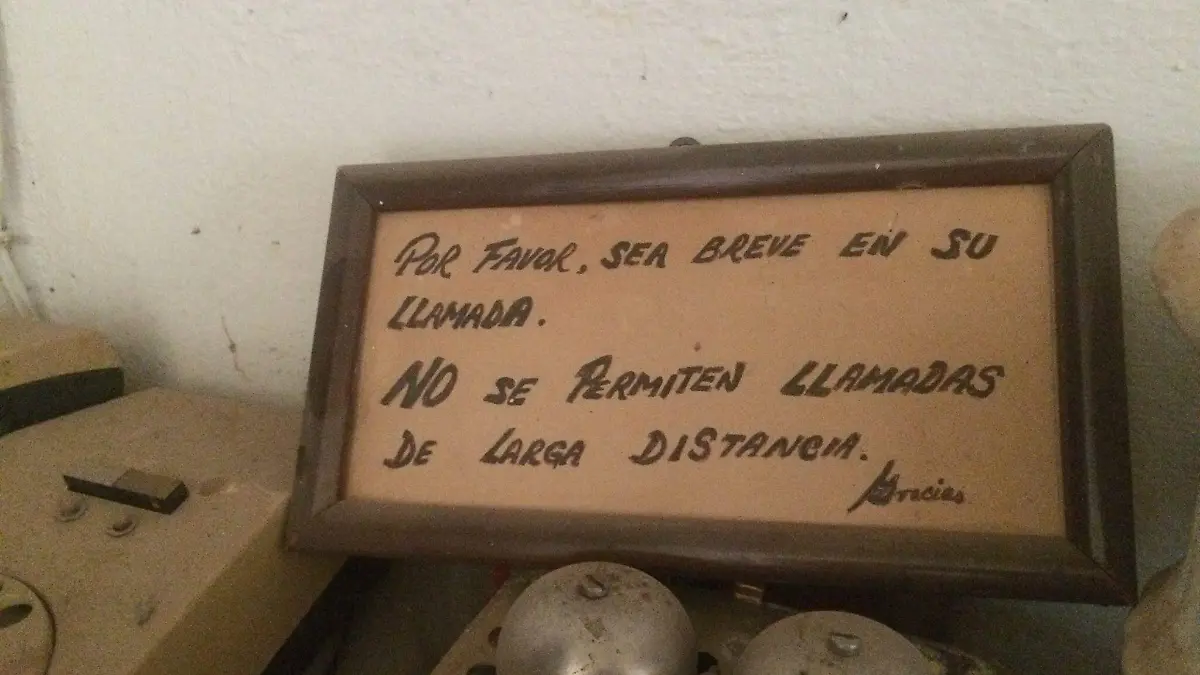 POR FAVOR, SEA BREVE EN SU
LLAMADA.
NO SE PERMITEN LLAMADAS
DE LARGA DISTANCIA.
Gracias